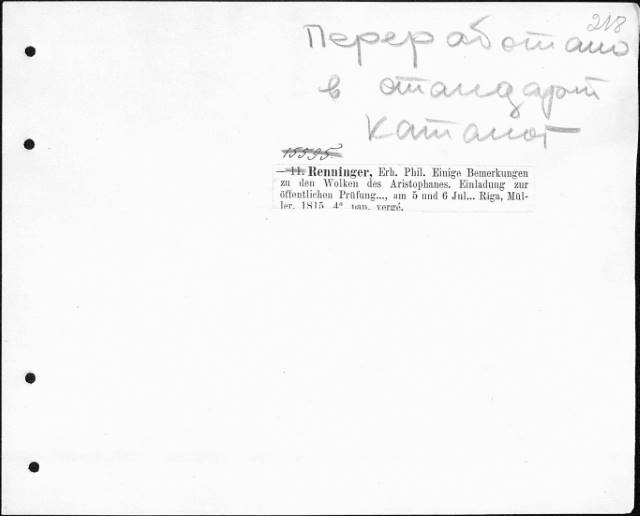 218
Переработано
в стандарт
каталог
15595.
— 11. Renninger, Erh. Phil. Einige Bemerkungen
zu den Wolken des Aristophanes. Einladung zur
öffentlichen Prüfung..., am 5 und 6 Jul... Riga, Mül-
ler, 1815, 4° pap. vergé.